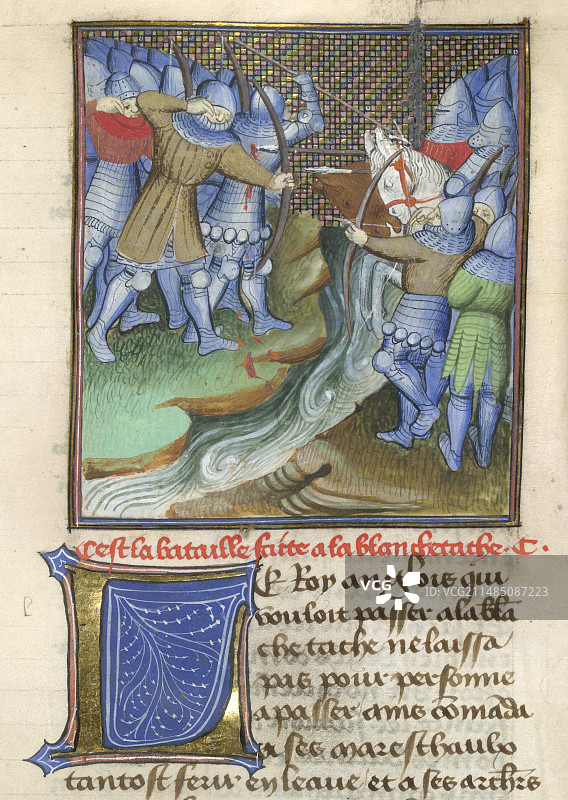 C'est la bataille faite a la blanchetache. C.
Le Roy anglois qui
vouloit passer a la bla
che tache ne laissa
pas pour personne
a passer ains comada
a ses mareschaulx
tantost ferir en leaue et a ses archrs
VCG
ID:VCG211485087223